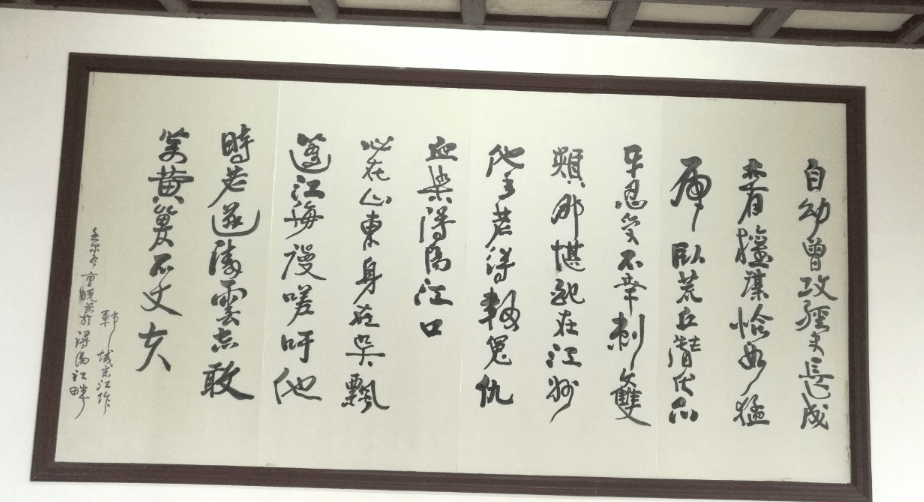 自幼曾攻經史長成
亦有權謀恰如猛
虎臥荒丘潛伏爪
牙忍受不幸刺雙
頰那堪配在江州
他年若得報冤仇
血染潯陽江口
心在山東身在吳飄
蓬江海謾嗟吁他
時若遂凌雲志敢
笑黃巢不丈夫
鄆城宋江作
潯陽江畔